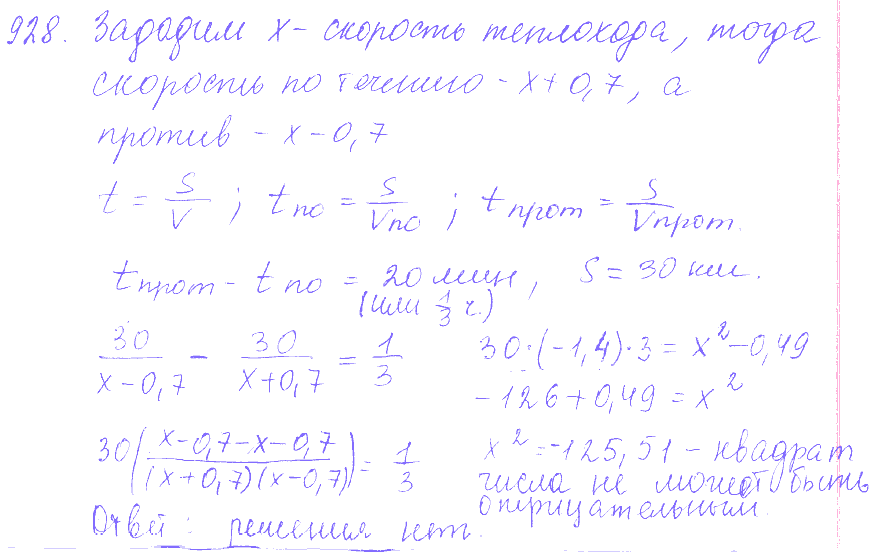 928. Зададим x - скорость теплохода, тогда
скорость по течению - x + 0,7, а
против - x - 0,7
t = S/V ; t по = S/Vпо ; t прот = S/Vпрот.
t прот - t по = 20 мин, S = 30 км.
(или 1/3 ч.)
30/(x-0,7) - 30/(x+0,7) = 1/3
30·(-1,4)·3 = x² - 0,49
-126 + 0,49 = x²
30((x-0,7-x-0,7)/((x+0,7)(x-0,7))) = 1/3
x² = -125,51 - квадрат
числа не может быть
отрицательным.
Ответ: решения нет.